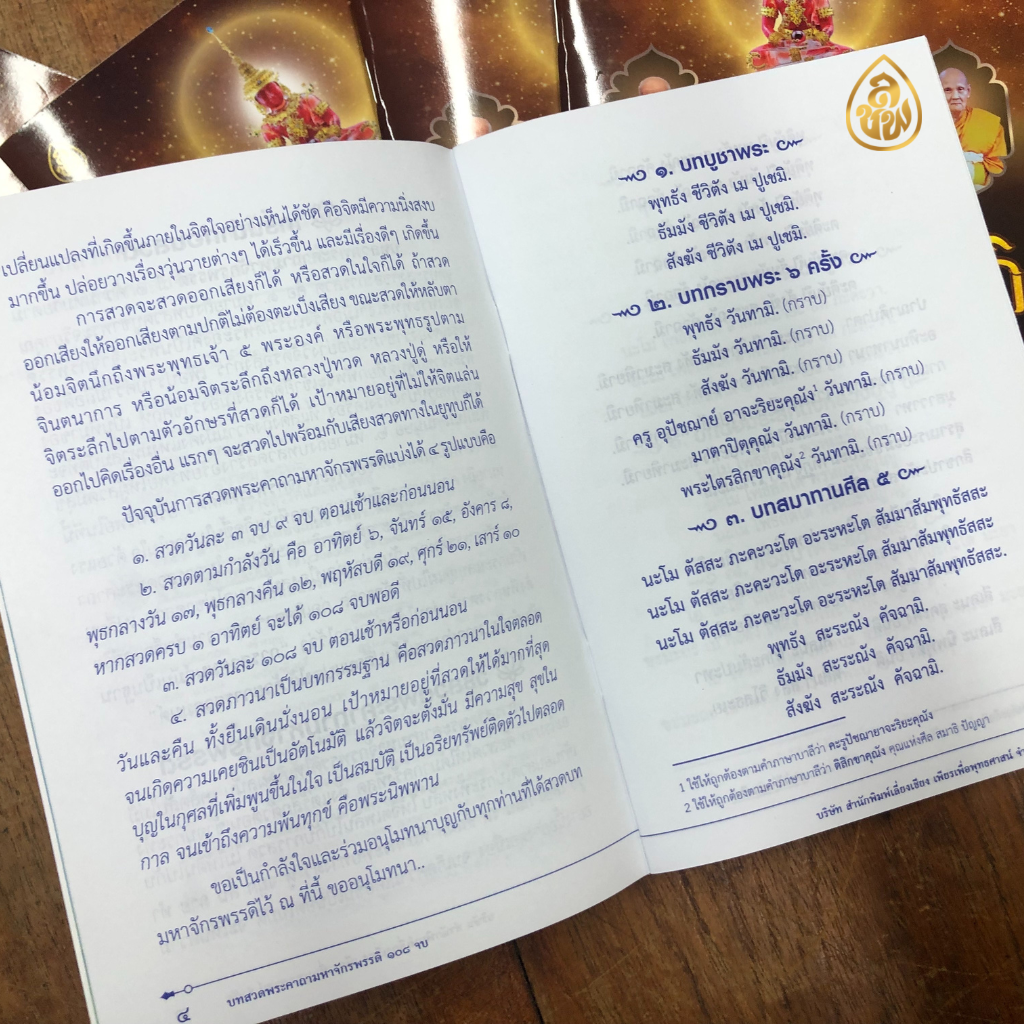 เปลี่ยนแปลงที่เกิดขึ้นภายในจิตใจอย่างเห็นได้ชัด คือจิตมีความนิ่งสงบ
มากขึ้น ปล่อยวางเรื่องวุ่นวายต่างๆ ได้เร็วขึ้น และมีเรื่องดีๆ เกิดขึ้น
การสวดจะสวดออกเสียงก็ได้ หรือสวดในใจก็ได้ ถ้าสวด
ออกเสียงให้ออกเสียงตามปกติไม่ต้องตะเบ็งเสียง ขณะสวดให้หลับตา
น้อมจิตนึกถึงพระพุทธเจ้า ๕ พระองค์ หรือพระพุทธรูปตาม
จินตนาการ หรือน้อมจิตระลึกถึงหลวงปู่ทวด หลวงปู่ดู่ หรือให้
จิตระลึกไปตามตัวอักษรที่สวดก็ได้ เป้าหมายอยู่ที่ไม่ให้จิตแล่น
ออกไปคิดเรื่องอื่น แรกๆ จะสวดไปพร้อมกับเสียงสวดทางในยูทูบก็ได้
ปัจจุบันการสวดพระคาถามหาจักรพรรดิแบ่งได้ ๔ รูปแบบคือ
๑. สวดวันละ ๓ จบ ๙ จบ ตอนเช้าและก่อนนอน
๒. สวดตามกำลังวัน คือ อาทิตย์ ๖, จันทร์ ๑๕, อังคาร ๘,
พุธกลางวัน ๑๗, พุธกลางคืน ๑๒, พฤหัสบดี ๑๙, ศุกร์ ๒๑, เสาร์ ๑๐
หากสวดครบ ๑ อาทิตย์ จะได้ ๑๐๘ จบพอดี
๓. สวดวันละ ๑๐๘ จบ ตอนเช้าหรือก่อนนอน
๔. สวดภาวนาเป็นบทกรรมฐาน คือสวดภาวนาในใจตลอด
วันและคืน ทั้งยืนเดินนั่งนอน เป้าหมายอยู่ที่สวดให้ได้มากที่สุด
จนเกิดความเคยชินเป็นอัตโนมัติ แล้วจิตจะตั้งมั่น มีความสุข สุขใน
บุญในกุศลที่เพิ่มพูนขึ้นในใจ เป็นสมบัติ เป็นอริยทรัพย์ติดตัวไปตลอด
กาล จนเข้าถึงความพ้นทุกข์ คือพระนิพพาน
ขอเป็นกำลังใจและร่วมอนุโมทนาบุญกับทุกท่านที่ได้สวดบท
มหาจักรพรรดิไว้ ณ ที่นี้ ขออนุโมทนา..
๔
บทสวดพระคาถามหาจักรพรรดิ ๑๐๘ จบ
ลิขพ
๑. บทบูชาพระ
พุทธัง ชีวิตัง เม ปูเชมิ.
ธัมมัง ชีวิตัง เม ปูเชมิ.
สังฆัง ชีวิตัง เม ปูเชมิ.
๒. บทกราบพระ ๖ ครั้ง
พุทธัง วันทามิ. (กราบ)
ธัมมัง วันทามิ. (กราบ)
สังฆัง วันทามิ. (กราบ)
ครู อุปัชฌาย์ อาจะริยะคุณัง¹ วันทามิ. (กราบ)
มาตาปิตุคุณัง วันทามิ. (กราบ)
พระไตรสิกขาคุณัง² วันทามิ. (กราบ)
๓. บทสมาทานศีล ๕
นะโม ตัสสะ ภะคะวะโต อะระหะโต สัมมาสัมพุทธัสสะ
นะโม ตัสสะ ภะคะวะโต อะระหะโต สัมมาสัมพุทธัสสะ
นะโม ตัสสะ ภะคะวะโต อะระหะโต สัมมาสัมพุทธัสสะ.
พุทธัง สะระณัง คัจฉามิ.
ธัมมัง สะระณัง คัจฉามิ.
สังฆัง สะระณัง คัจฉามิ.
1 ใช้ให้ถูกต้องตามคำภาษาบาลีว่า คะรูปัชฌายาจะริยะคุณัง
2 ใช้ให้ถูกต้องตามคำภาษาบาลีว่า ติสิกขาคุณัง คุณแห่งศีล สมาธิ ปัญญา
บริษัท สำนักพิมพ์เลี่ยงเชียง เพียรเพื่อพุทธศาสน์